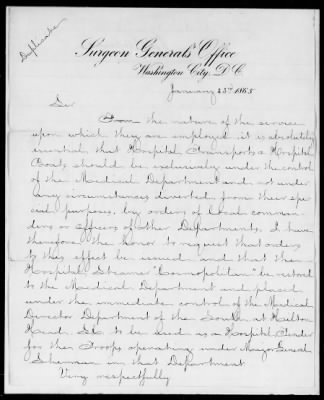 Duplicate
Surgeon General's Office
Washington City, D.C.
January 23rd 1865
Sir
From the nature of the service
upon which they are employed it is absolutely
essential, that Hospital Transports & Hospital
Boats should be exclusively under the control
of the Medical Department and not under
any circumstances diverted from their spe
cial purposes, by orders of Local comman
ders or officers of other Departments. I have
therefore the honor to request that orders
to this effect be issued and that the
Hospital Steamer "Cosmopolitan" be restored
to the Medical Department and placed
under the immediate control of the Medical
Director Department of the South at Hilton
Head, S.C. to be used as a Hospital Tender
for the Troops operating under Major General
Sherman in that Department.
Very respectfully